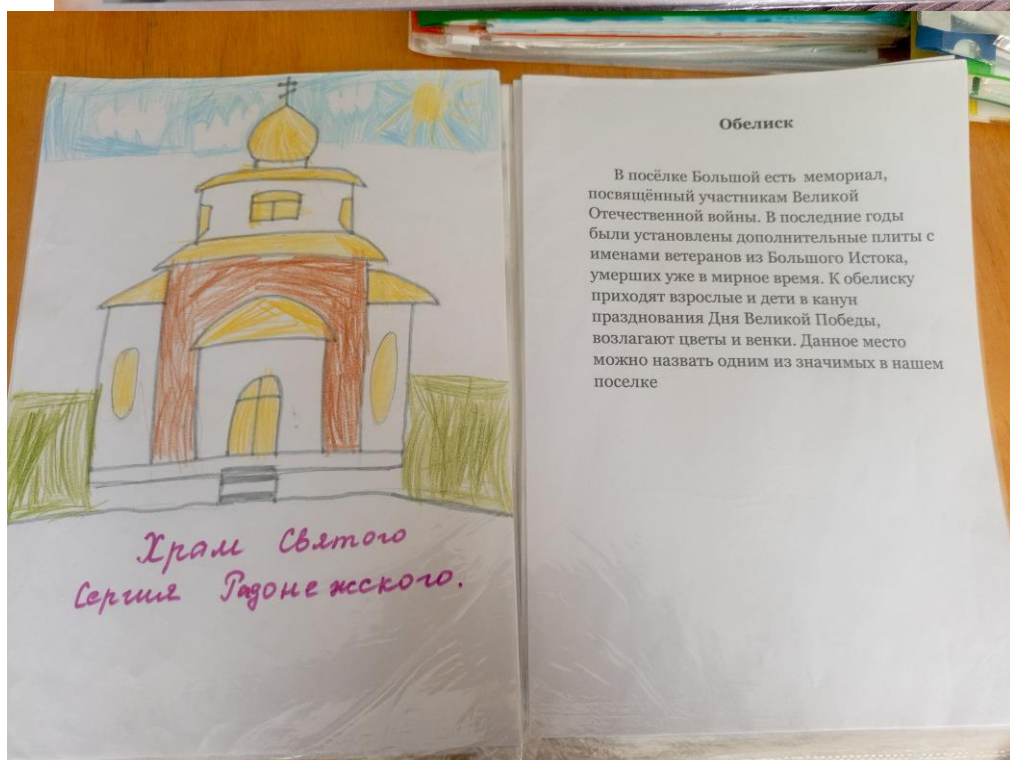 Храм Святого
Сергия Радонежского.
Обелиск
В посёлке Большой есть мемориал,
посвящённый участникам Великой
Отечественной войны. В последние годы
были установлены дополнительные плиты с
именами ветеранов из Большого Истока,
умерших уже в мирное время. К обелиску
приходят взрослые и дети в канун
празднования Дня Великой Победы,
возлагают цветы и венки. Данное место
можно назвать одним из значимых в нашем
поселке